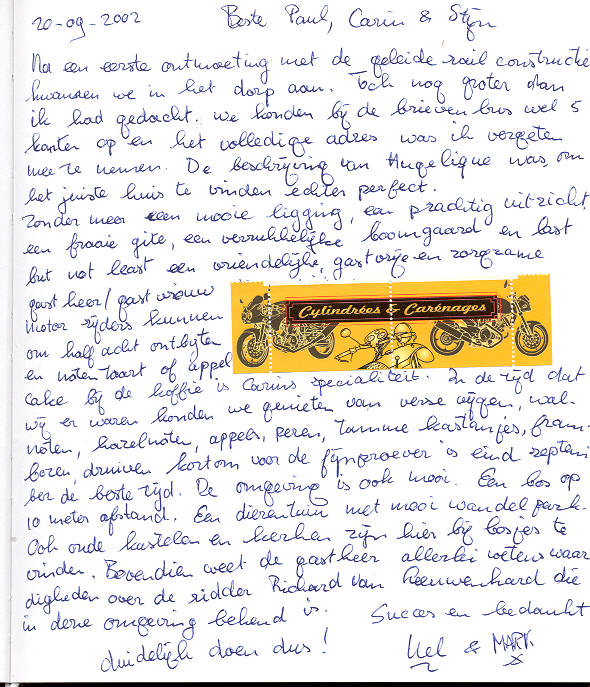 20-09-2002 Beste Paul, Carin & Stijn
Na een eerste ontmoeting met de geleide rail constructie
kwamen we in het dorp aan. Toch nog groter dan
ik had gedacht. We konden bij de brievenbus wel 5
kanten op en het volledige adres was ik vergeten
mee te nemen. De beschrijving van Angelique was om
het juiste huis te vinden echter perfect.
Zonder meer een mooie ligging, een prachtig uitzicht,
een fraaie gite, een verrukkelijke boomgaard en last
but not least een vriendelijke, gastvrije en zorgzame
gastheer/gastvrouw
Cylindrées & Carénages
Motor rijders kunnen
om half acht ontbijten
en notentaart of appel
cake bij de koffie is Carins specialiteit. In de tijd dat
wij er waren konden we genieten van verse vijgen, wal-
noten, hazelnoten, appels, peren, tamme kastanjes, fram-
bozen, druiven kortom voor de fijnproever is eind septem
ber de beste tijd. De omgeving is ook mooi. Een bos op
10 meter afstand. Een dierentuin met mooi wandelpark.
Ook oude kastelen en kerken zijn hier bij bosjes te
vinden. Bovendien weet de gastheer allerlei wetenswaar
digheden over de ridder Richard van Leeuwenhard die
in deze omgeving bekend is. Succes en bedankt
duidelijk doen dus! & MARK